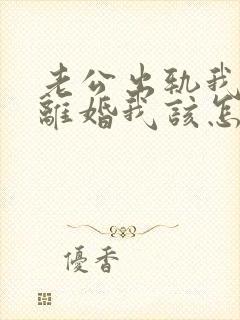 老公出轨我
離婚我該怎
優香